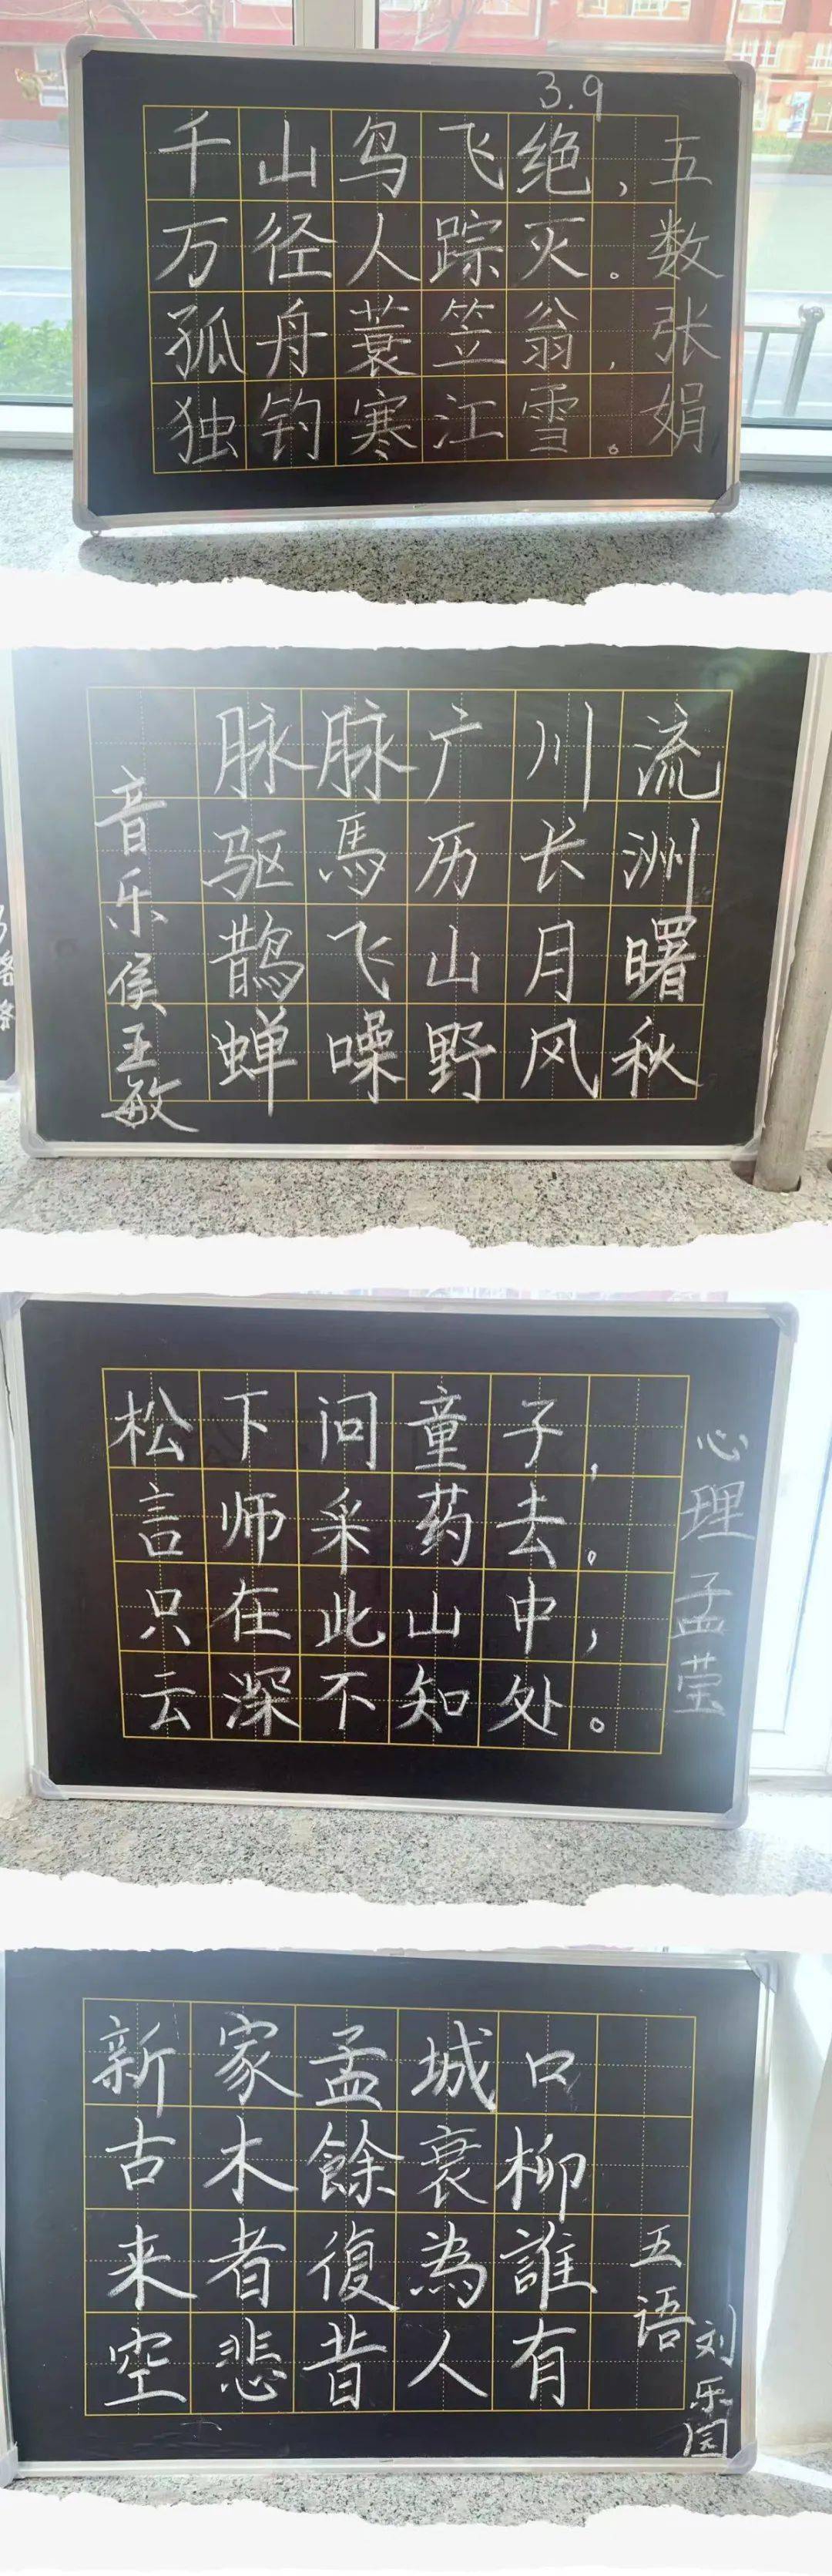 3.9
千山鸟飞绝,
万径人踪灭。
孤舟蓑笠翁,
独钓寒江雪。
五数张娟
脉脉广川流
驱馬历长洲
鹊飞山月曙
蝉噪野风秋
音乐侯王敏
松下问童子,
言师采药去。
只在此山中,
云深不知处。
心理孟莹
新家孟城口
古木餘衰柳
来者復為誰
空悲昔人有
五语
刘乐园